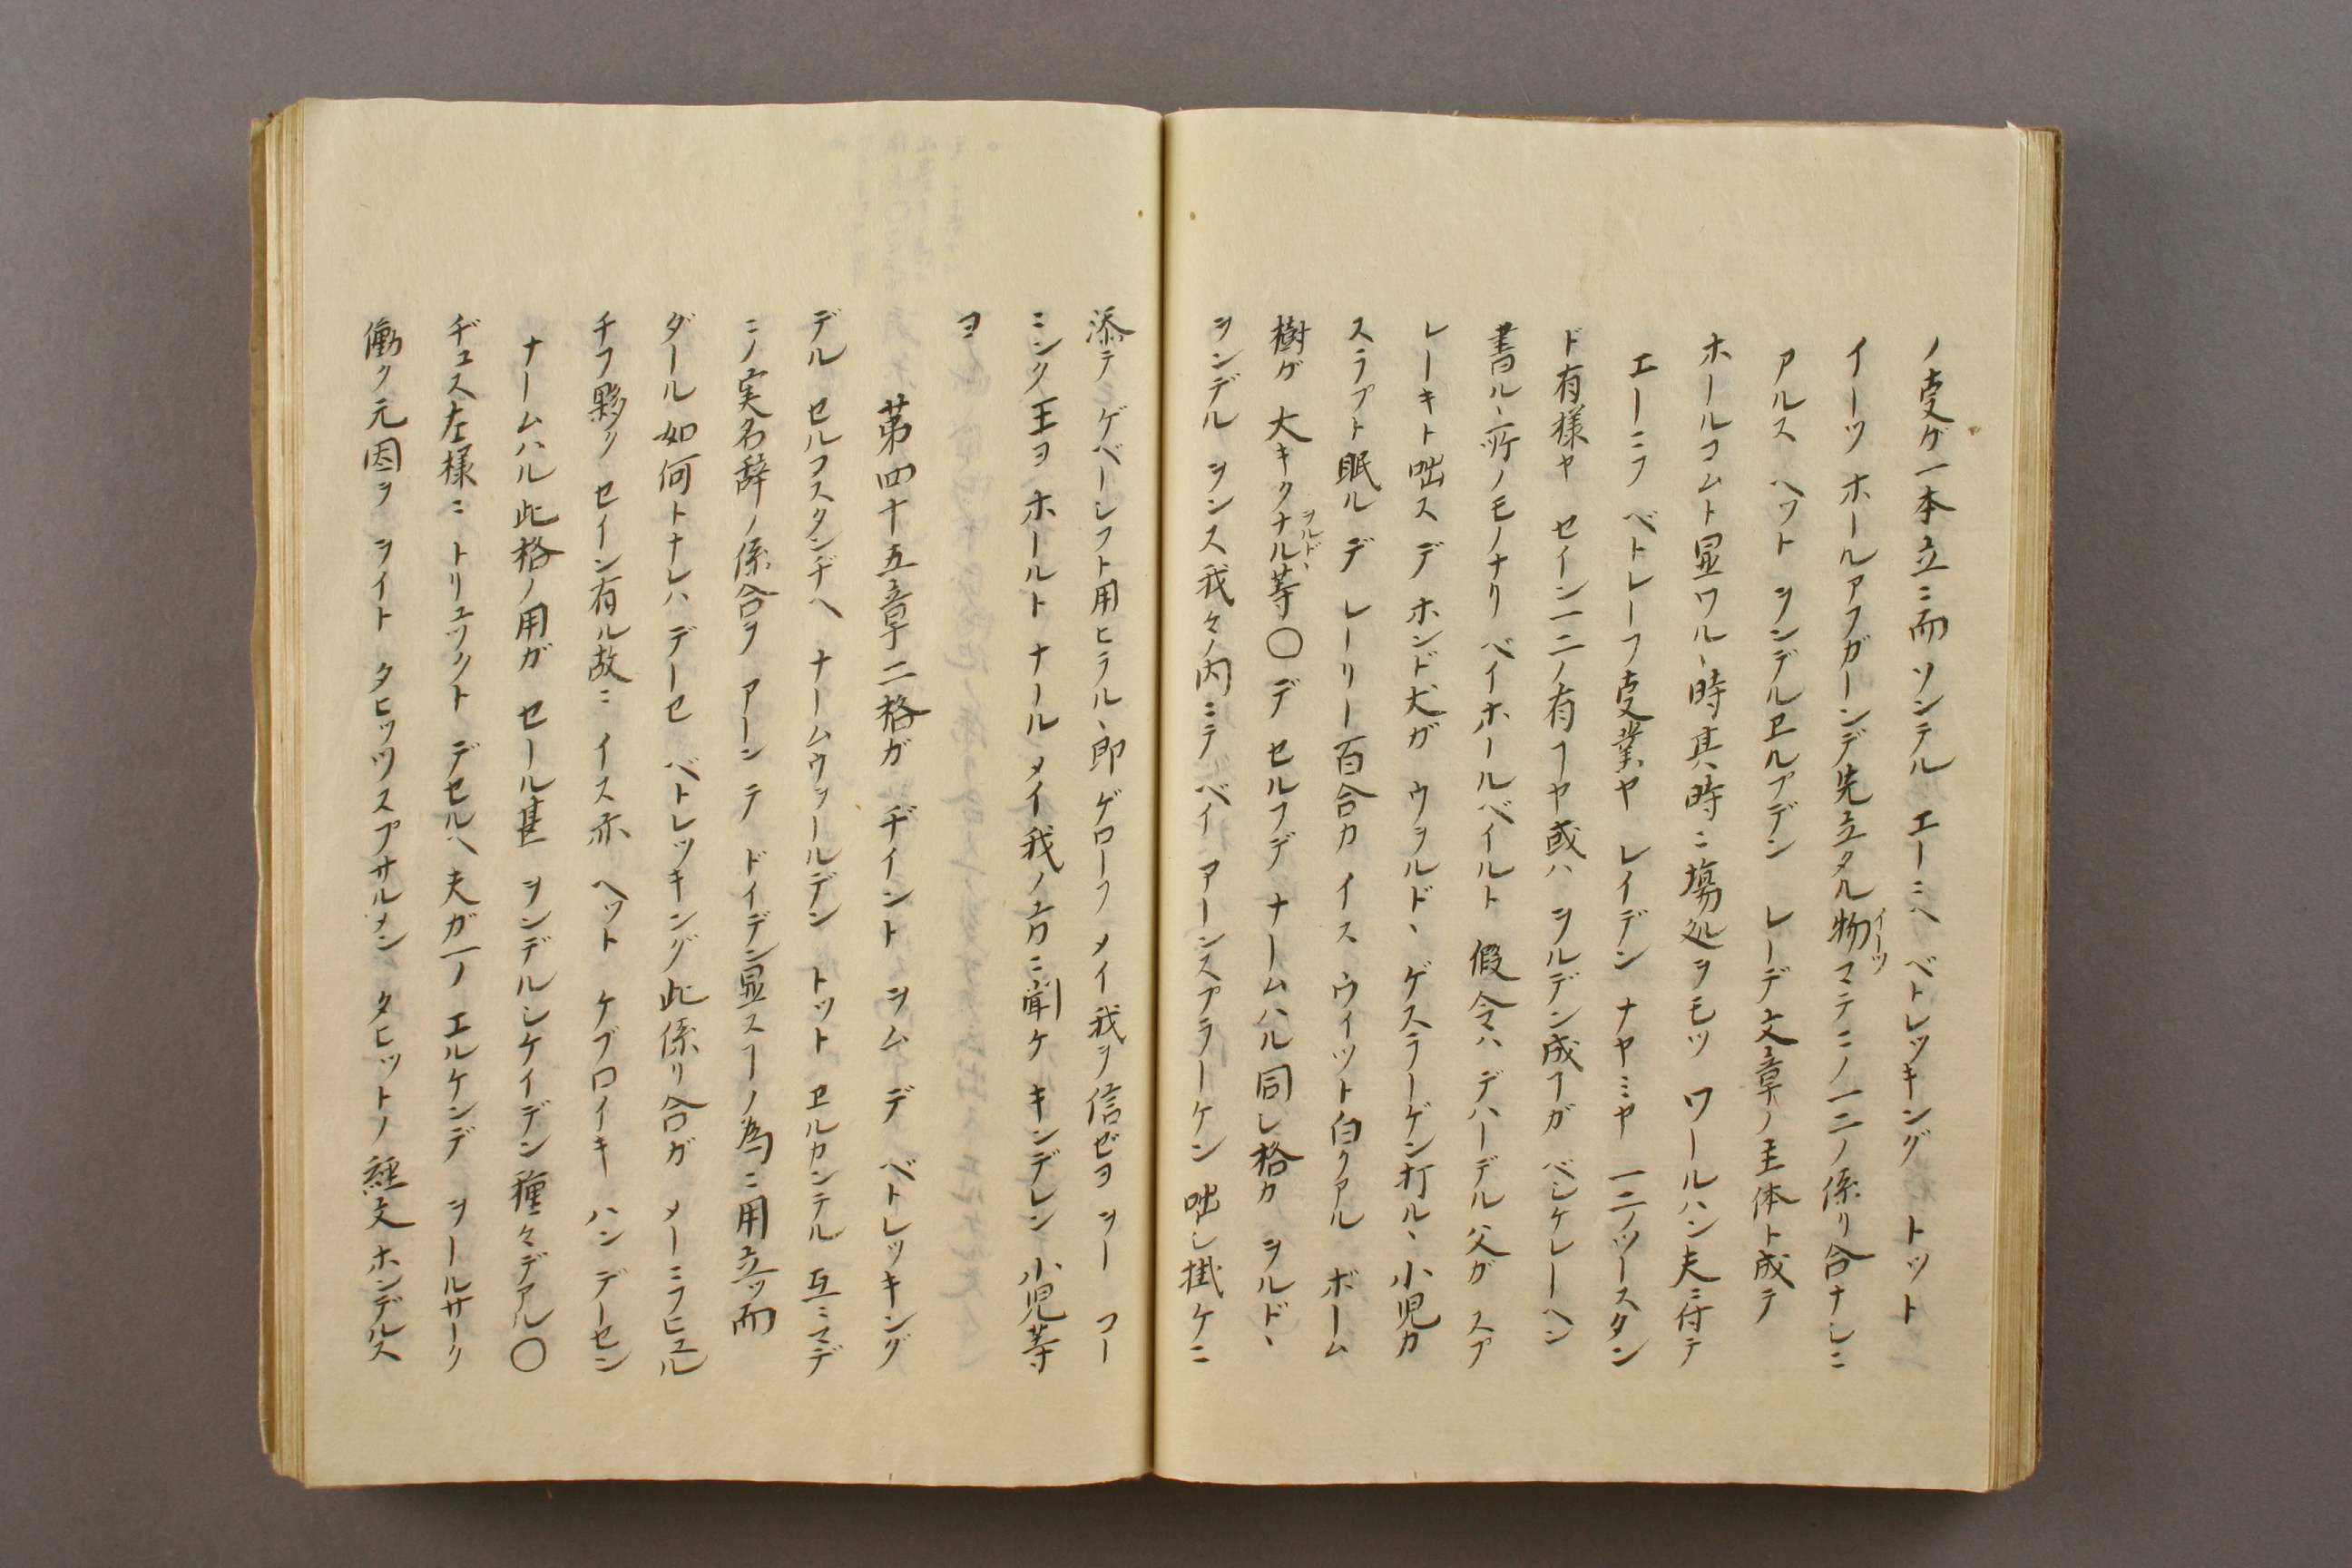 ノ叓ガ一本立ニ而ソンテル エーニヘ ベトレッキング トット
イーツ ホールアフガーンデ先立タル物イーツマテニノ一二ノ係リ合ナシニ
アルス ヘット ヲンデルヱルプデン レーデ文章ノ主体ト成テ
ホールコムト显ワルヽ時其時ニ塲処ヲモツ ワールハン夫ニ付テ
エーニフ ベトレーフ叓業ヤ レイデン ナヤミヤ 一二ノツースタン
ド有様ヤ セイン一二ノ有ヿヤ或ハ ヲルデン成ヿガ ベシケレーヘン
書ルヽ所ノモノナリ ベイホールベイルト 假令ハ デハーデル父ガ スプ
レーキト咄ス デ ホンド犬ガ ウヲルドヽ ゲスラーゲン打ルヽ小児カ
スラプト眠ル デ レーリー百合カ イス ウィット白クアル ボーム
樹ガ 大キクナルヲルドヽ等〇デ セルフデ ナームハル同シ格カ ヲルドヽ
ヲンデル ヲンス我々ノ内ニテ ベイ アーンスプラーケン 咄シ掛ケニ
添テ ゲベーシフト用ヒラルヽ即 ゲローフ メイ我ヲ信ゼヨ ヲー コー
ニンク王ヨ ホールト ナール メイ我ノ方ニ聞ケ キンデレン 小児等
ヨ
第四十五章二格ガ ヂイント ヲム デ ベトレッキング
デル セルフスタンヂヘ ナームウヲールデン トット ヱルカンテル 互ニマデ
ニノ実名辞ノ係合ヲ アーン テ ドイデン显スヿノ為ニ用立ツ而
ダール如何トナレハ デーセ ベトレッキング此係リ合ガ メーニフヒュル
チフ夥ク セイン有ル故ニ イス亦 ヘット ケブロイキ ハン デーセン
ナームハル此格ノ用ガ セール甚 ヲンデルシケイデン種々デアル〇
ヂュス左様ニ トリュックト デセルヘ夫ガ一ノ エルケンデ ヲールサーク
働ク元因ヲ ヲイト タヒッツスプサルメン タヒットノ経文 ホンデルス